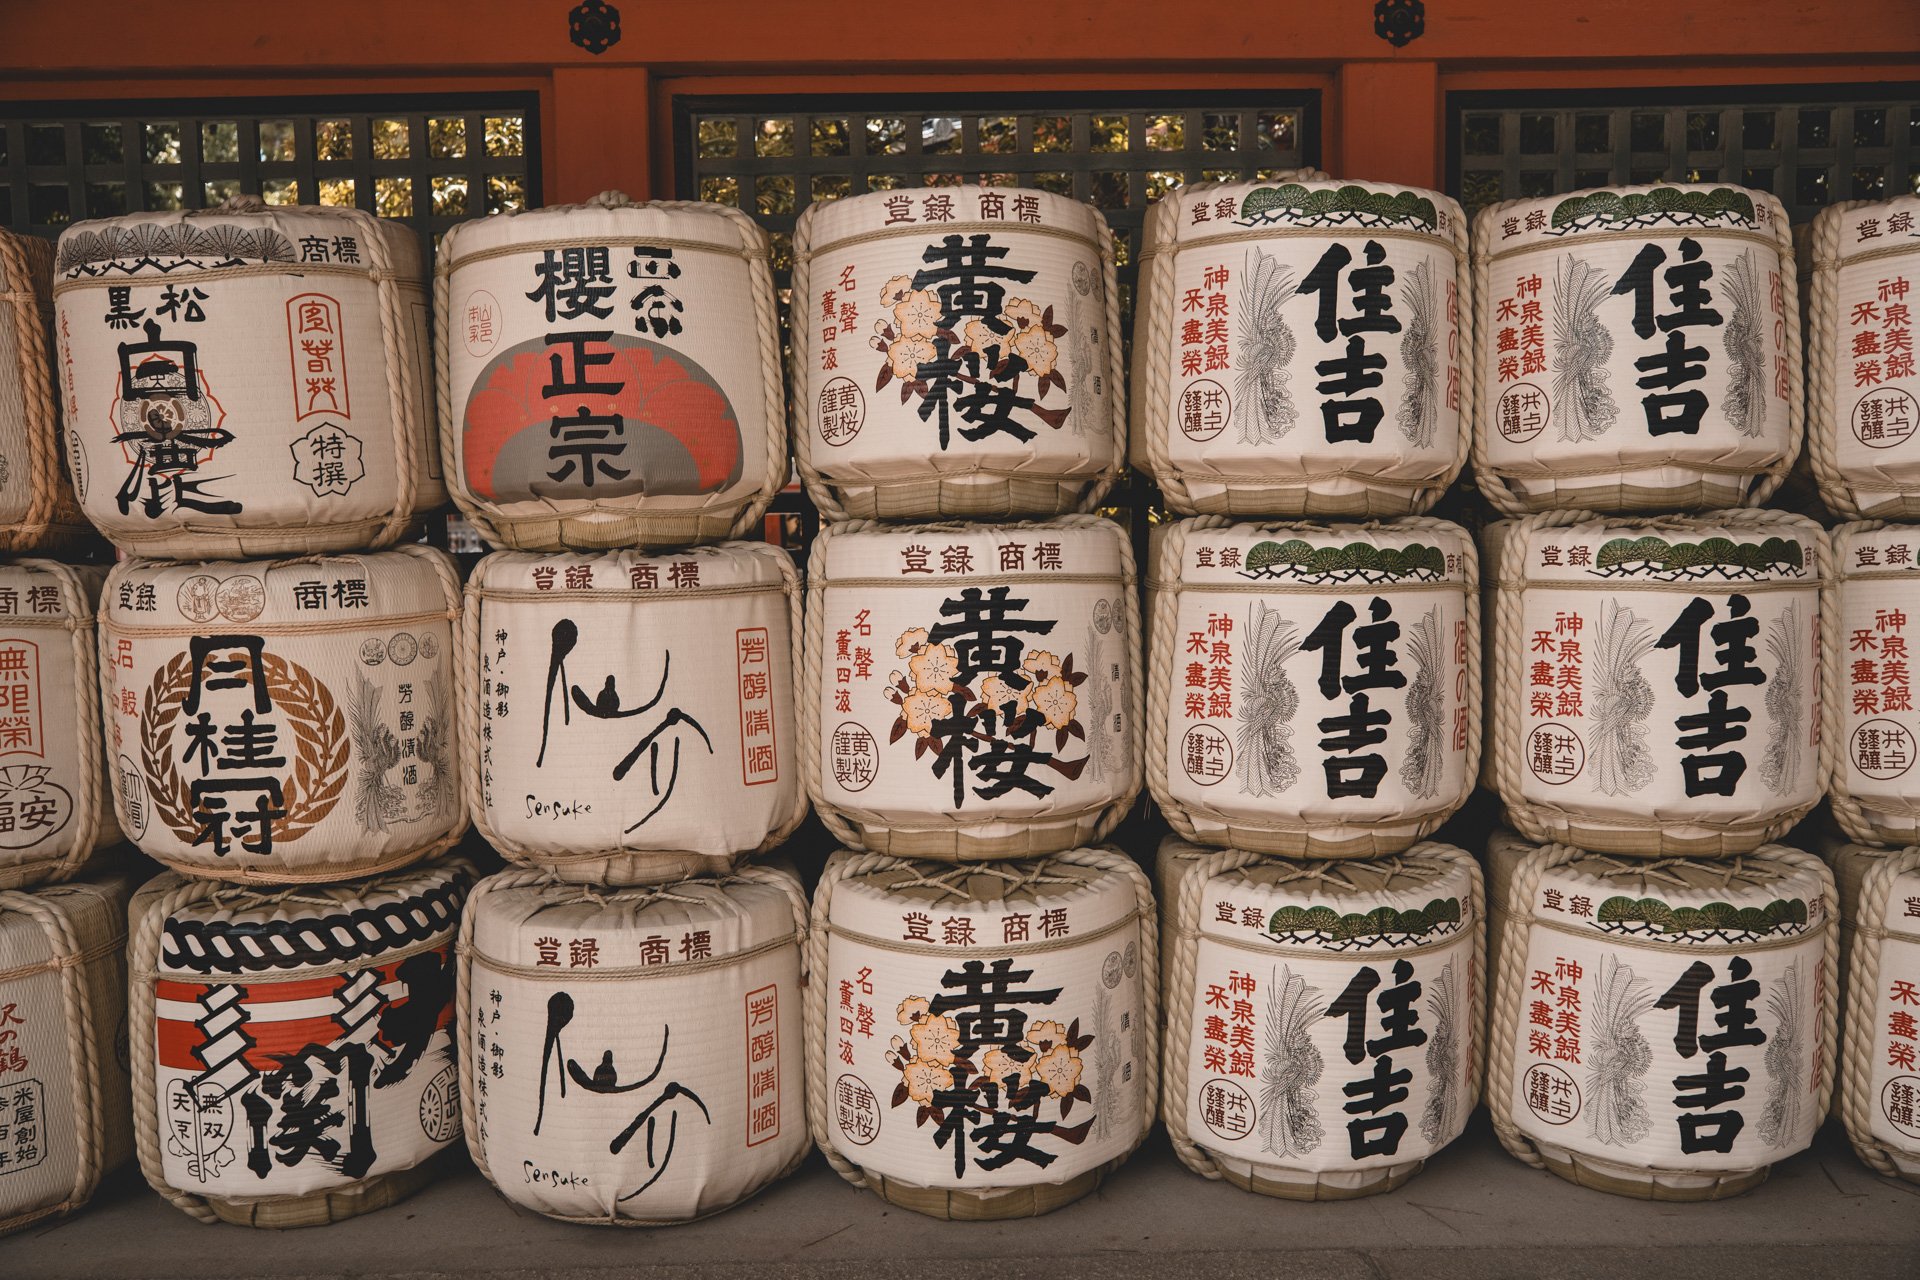 商標
黒松
白鹿
特撰
正宗
櫻正宗
登録 商標
黄桜
名聲
薫四海
黄桜
謹製
登録
住吉
神泉美録
禾盡榮
謹醸
酒の酒
登録
住吉
神泉美録
禾盡榮
謹醸
酒の酒
登録
神泉美録
禾盡榮
謹醸
商標
無限榮
福安
登録 商標
月桂冠
芳醇清酒
登録 商標
仙介
sensuke
神戸・御影
泉酒造株式会社
芳醇清酒
登録 商標
黄桜
名聲
薫四海
黄桜
謹製
登録
住吉
神泉美録
禾盡榮
謹醸
酒の酒
登録
住吉
神泉美録
禾盡榮
謹醸
酒の酒
登録
神泉美録
禾盡榮
謹醸
沢の鶴
米屋創始
大関
天下
無双
登録 商標
仙介
sensuke
神戸・御影
泉酒造株式会社
芳醇清酒
登録 商標
黄桜
名聲
薫四海
黄桜
謹製
登録
住吉
神泉美録
禾盡榮
謹醸
登録
住吉
神泉美録
禾盡榮
謹醸